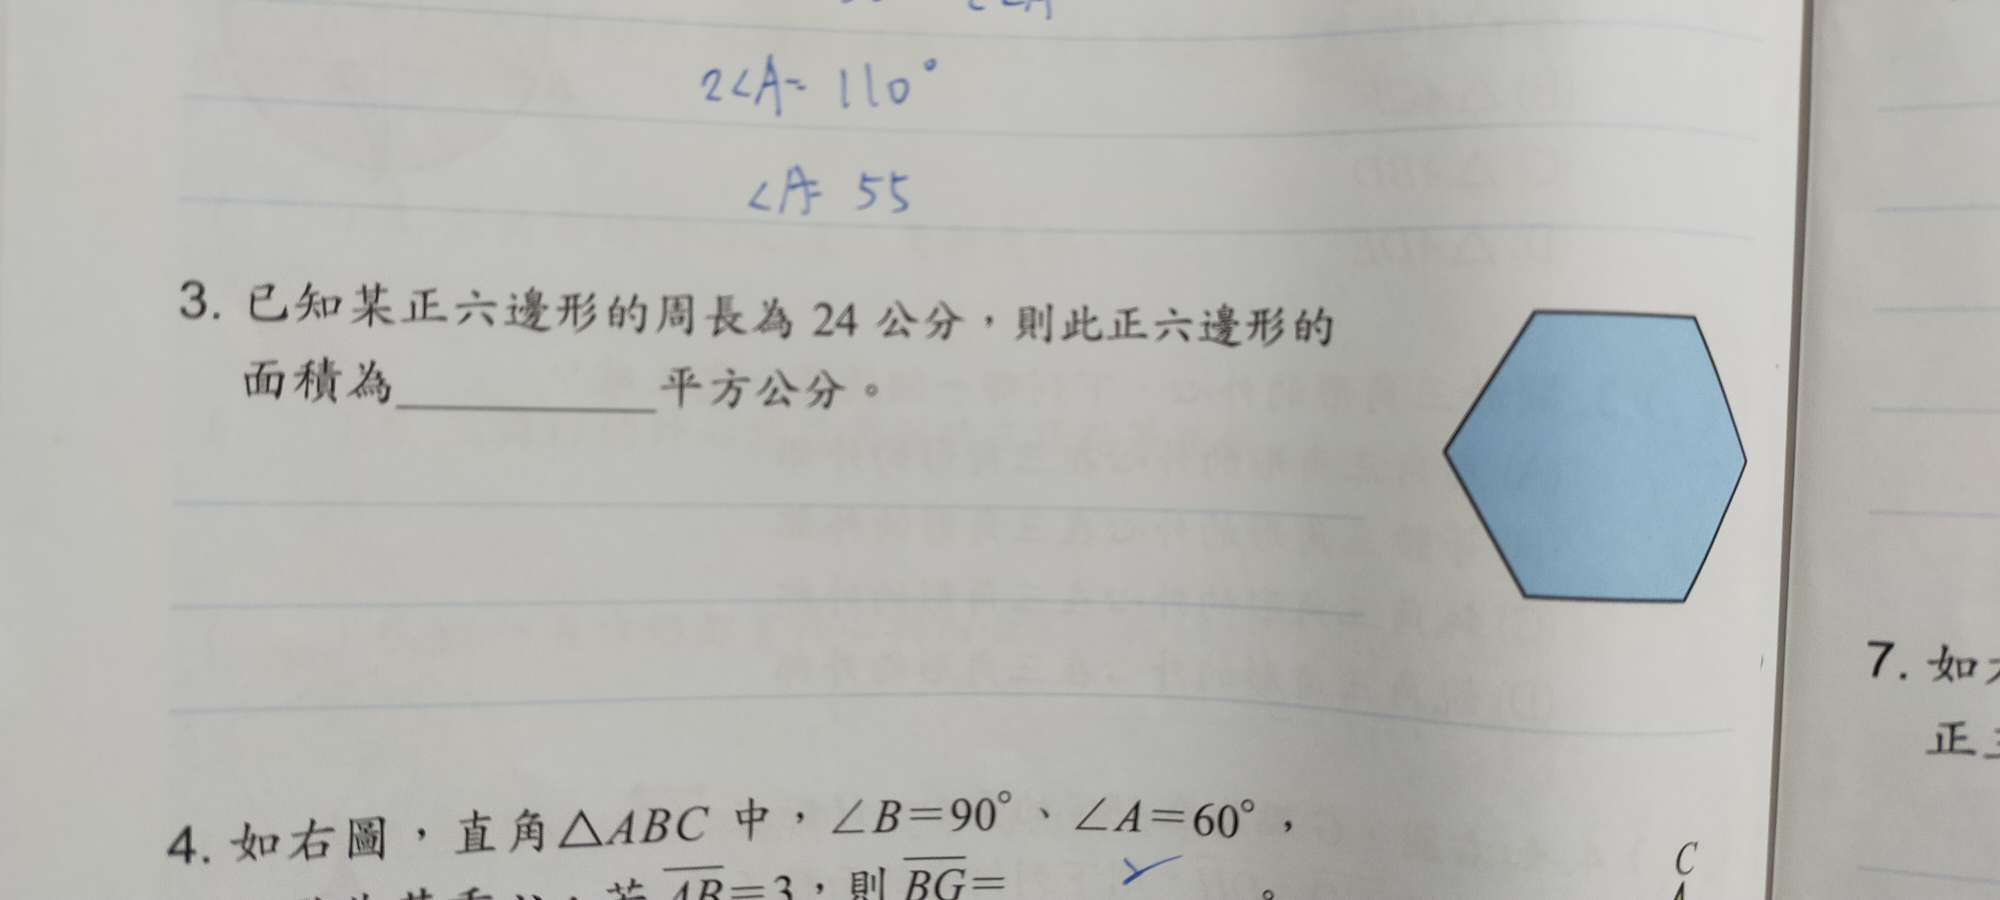 2∠A= 110°
∠A= 55
3. 已知某正六邊形的周長為 24 公分，則此正六邊形的
面積為__________平方公分。
4. 如右圖，直角△ABC 中，∠B=90°、∠A=60°，
若 AB=3，則 BG=
。
C
7. 如
正